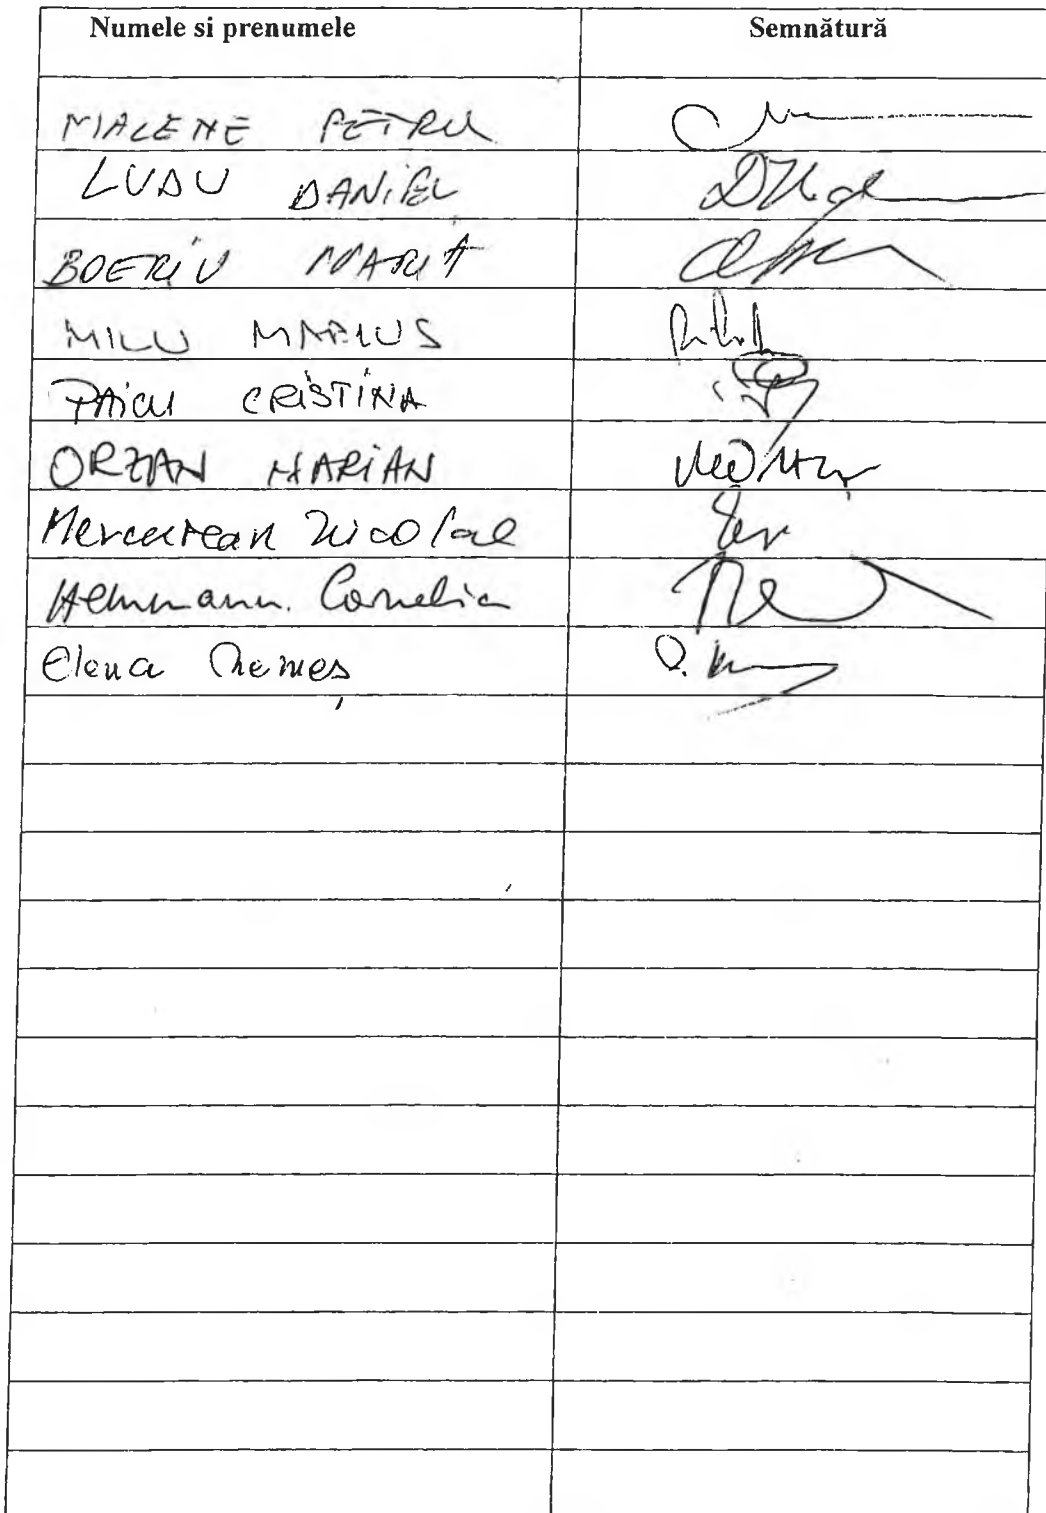 Numele si prenumele Semnătură
MALENE PETRU
LUDU DANIEL
BOERIU MARIA
MILU MARIUS
PAICU CRISTINA
ORZAN MARIAN
Mercurean Nicolae
Hermann Cornelia
Elena Nemeș